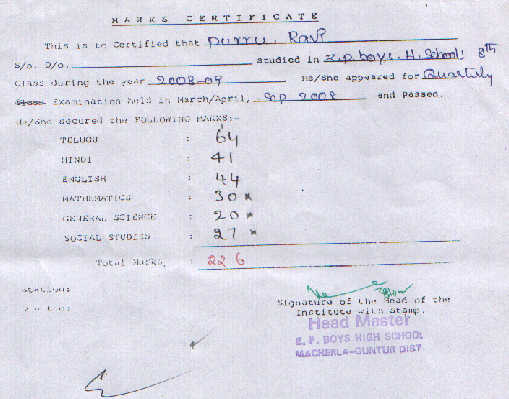 MARKS CERTIFICATE
This is to Certified that Durru. Ravi
S/o. D/o. studied in Z.p.boys.H.School. 8th
Class during the year 2008-09 He/She appeared for Quartily
Class Examination held in March/April, Sep 2008 and Passed.
He/She secured the FOLLOWING MARKS:-
TELUGU : 64
HINDI : 41
ENGLISH : 44
MATHEMATICS : 30 *
GENERAL SCIENCE : 20 *
SOCIAL STUDIES : 27 *
Total Marks, : 226
Station:
Signature of the Head of the
Institute with stamp.
Head Master
Z. P. BOYS HIGH SCHOOL
MACHERLA-GUNTUR DIST